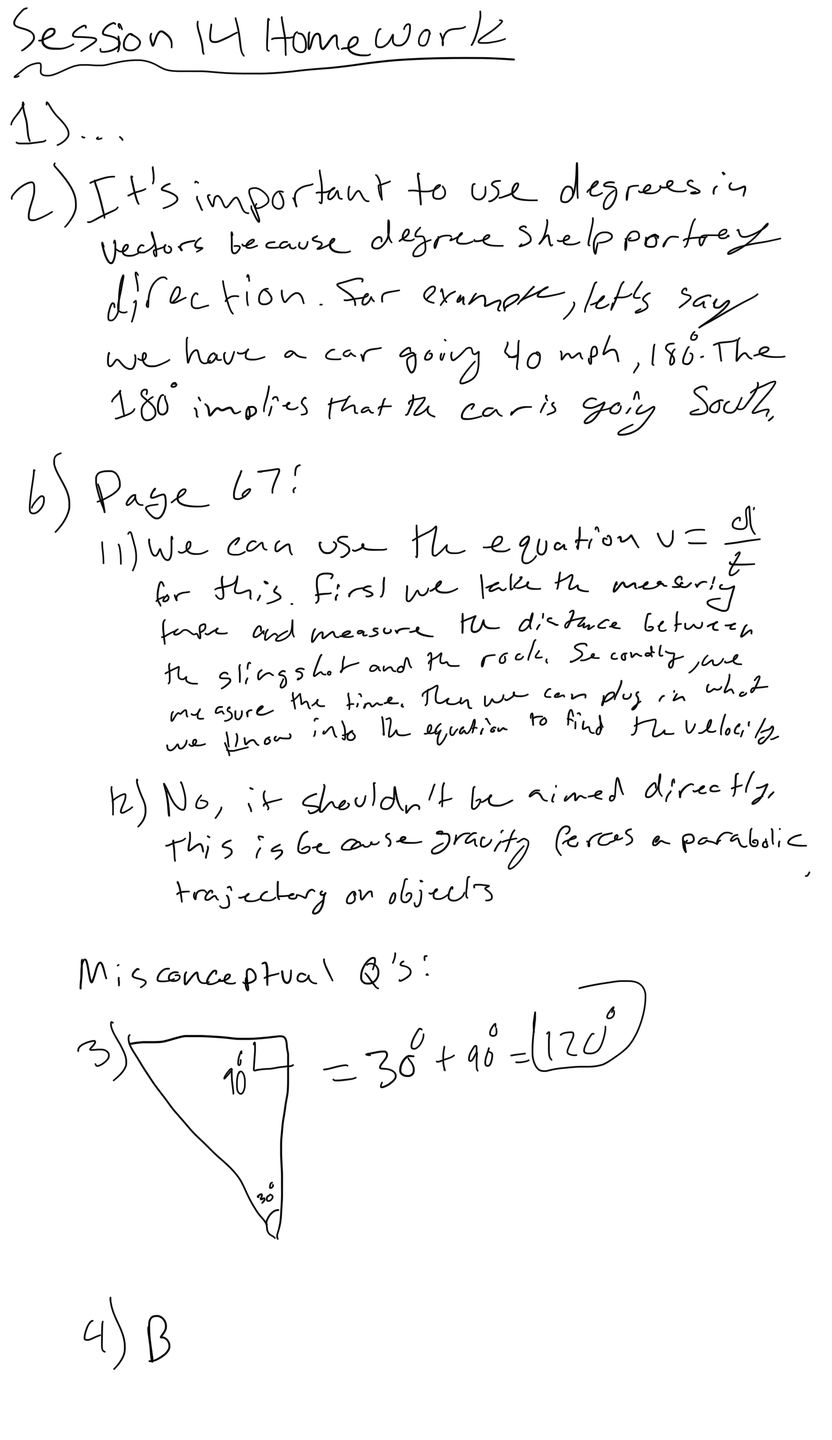 Session 14 Homework
1)...
2) It's important to use degrees in
vectors because degree s help portray
direction. For example, let's say
we have a car going 40 mph, 180°. The
180° implies that the car is going South.
6) Page 67:
11) We can use the equation v = d/t
for this. First we take the measuring
tape and measure the distance between
the slingshot and the rock. Secondly, we
measure the time. Then we can plug in what
we know into the equation to find the velocity.
12) No, it shouldn't be aimed directly.
This is because gravity forces a parabolic
trajectory on objects.
Misconceptual Q's:
3) 90° = 30° + 90° = 120°
30°
4) B